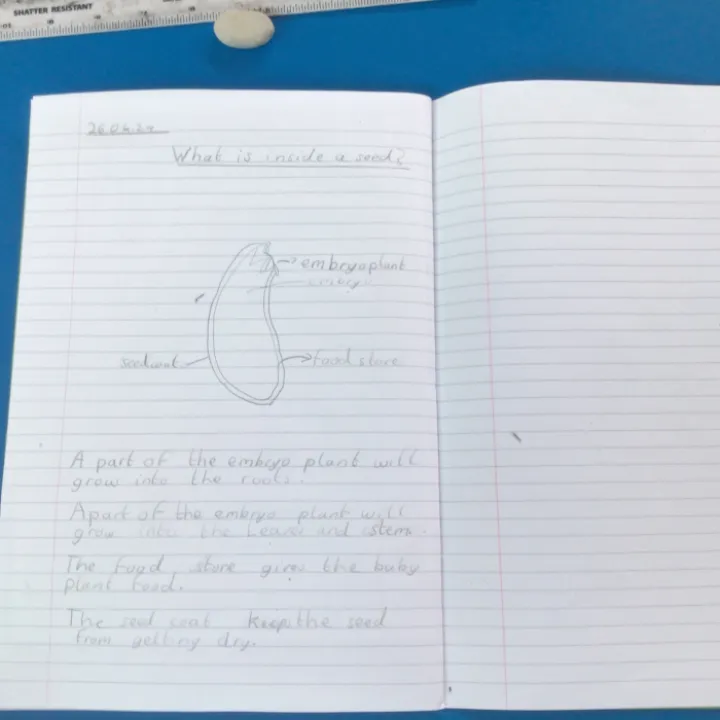 SHATTER RESISTANT
What is inside a seed?
embryo plant
seed coat
food store
A part of the embryo plant will
grow into the roots.
A part of the embryo plant will
grow into the Leaves and stem.
The food store gives the baby
plant food.
The seed coat keep the seed
from getting dry.